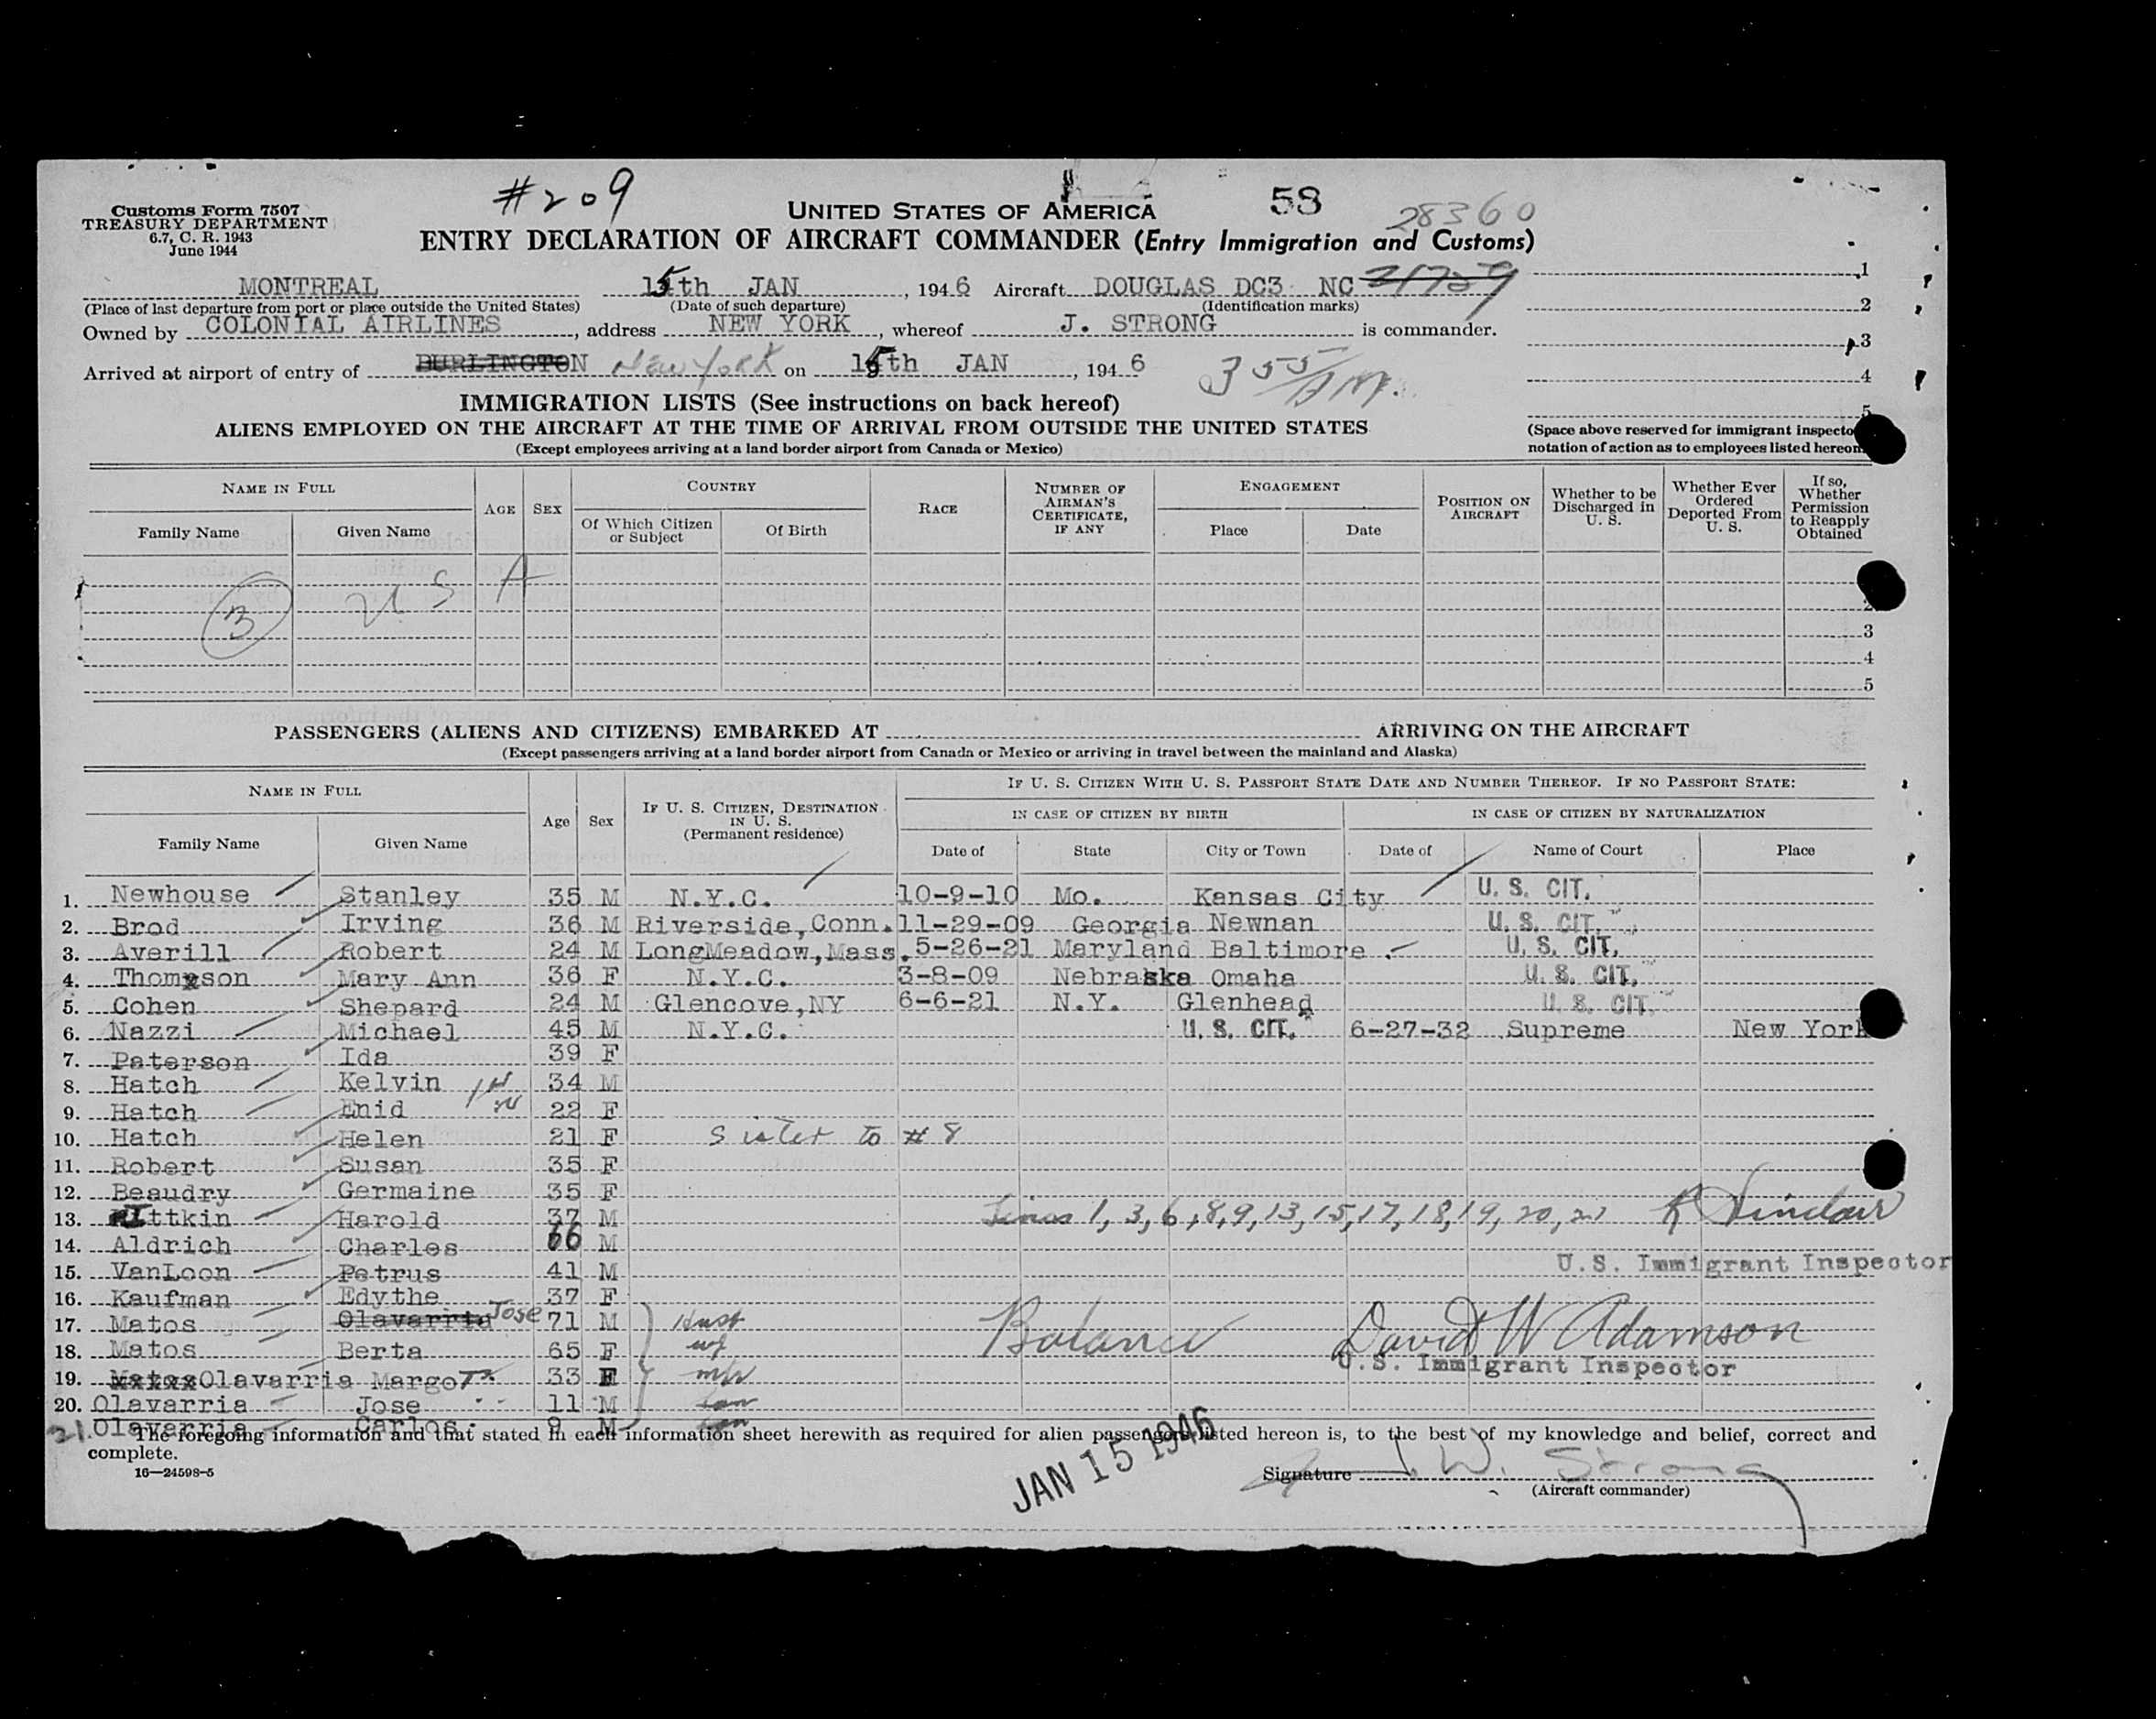 #209
58
28360
Customs Form 7507
TREASURY DEPARTMENT
6.7, C. R. 1943
June 1944
UNITED STATES OF AMERICA
ENTRY DECLARATION OF AIRCRAFT COMMANDER (Entry Immigration and Customs)
MONTREAL 15th JAN, 1946 Aircraft DOUGLAS DC3 NC 21729
(Place of last departure from port or place outside the United States) (Date of such departure) (Identification marks)
Owned by COLONIAL AIRLINES, address NEW YORK, whereof J. STRONG is commander.
Arrived at airport of entry of BURLINGTON New York on 15th JAN, 1946 355 AM.
1
2
3
4
5
(Space above reserved for immigrant inspecto
notation of action as to employees listed hereon.
IMMIGRATION LISTS (See instructions on back hereof)
ALIENS EMPLOYED ON THE AIRCRAFT AT THE TIME OF ARRIVAL FROM OUTSIDE THE UNITED STATES
(Except employees arriving at a land border airport from Canada or Mexico)
NAME IN FULL
Family Name
Given Name
AGE
SEX
COUNTRY
Of Which Citizen or Subject
Of Birth
RACE
NUMBER OF AIRMAN'S CERTIFICATE, IF ANY
ENGAGEMENT
Place
Date
POSITION ON AIRCRAFT
Whether to be Discharged in U. S.
Whether Ever Ordered Deported From U. S.
If so, Whether Permission to Reapply Obtained
3 U S A
2
3
4
5
PASSENGERS (ALIENS AND CITIZENS) EMBARKED AT ARRIVING ON THE AIRCRAFT
(Except passengers arriving at a land border airport from Canada or Mexico or arriving in travel between the mainland and Alaska)
NAME IN FULL
Family Name
Given Name
Age
Sex
IF U. S. CITIZEN, DESTINATION IN U. S. (Permanent residence)
IF U. S. CITIZEN WITH U. S. PASSPORT STATE DATE AND NUMBER THEREOF. IF NO PASSPORT STATE:
IN CASE OF CITIZEN BY BIRTH
IN CASE OF CITIZEN BY NATURALIZATION
Date of
State
City or Town
Date of
Name of Court
Place
1. Newhouse Stanley 35 M N.Y.C. 10-9-10 Mo. Kansas City U. S. CIT.
2. Brod Irving 36 M Riverside, Conn. 11-29-09 Georgia Newnan U. S. CIT.
3. Averill Robert 24 M LongMeadow, Mass. 5-26-21 Maryland Baltimore U. S. CIT.
4. Thomxson Mary Ann 36 F N.Y.C. 3-8-09 Nebraska Omaha U. S. CIT.
5. Cohen Shepard 24 M Glencove, NY 6-6-21 N.Y. Glenhead U. S. CIT.
6. Nazzi Michael 45 M N.Y.C. U. S. CIT. 6-27-32 Supreme New York
7. Paterson Ida 39 F
8. Hatch Kelvin 34 M
9. Hatch Enid 22 F
10. Hatch Helen 21 F Sister to #8
11. Robert Susan 35 F
12. Beaudry Germaine 35 F
13. Ittkin Harold 37 M Lines 1, 3, 6, 8, 9, 13, 15, 17, 18, 19, 20, 21 R Sinclair
14. Aldrich Charles 66 M
U.S. Immigrant Inspector
15. VanLoon Petrus 41 M
16. Kaufman Edythe 37 F
17. Matos Olavarria Jose 71 M Husb
18. Matos Berta 65 F wf Balance David W Adamson
U.S. Immigrant Inspector
19. Matos Olavarria Margot 33 F
20. Olavarria Jose 11 M
21. Olavarria Carlos 9 M
The foregoing information and that stated in each information sheet herewith as required for alien passengers listed hereon is, to the best of my knowledge and belief, correct and
complete.
16—24598-5
JAN 15 1946
Signature J. W. Strong
(Aircraft commander)